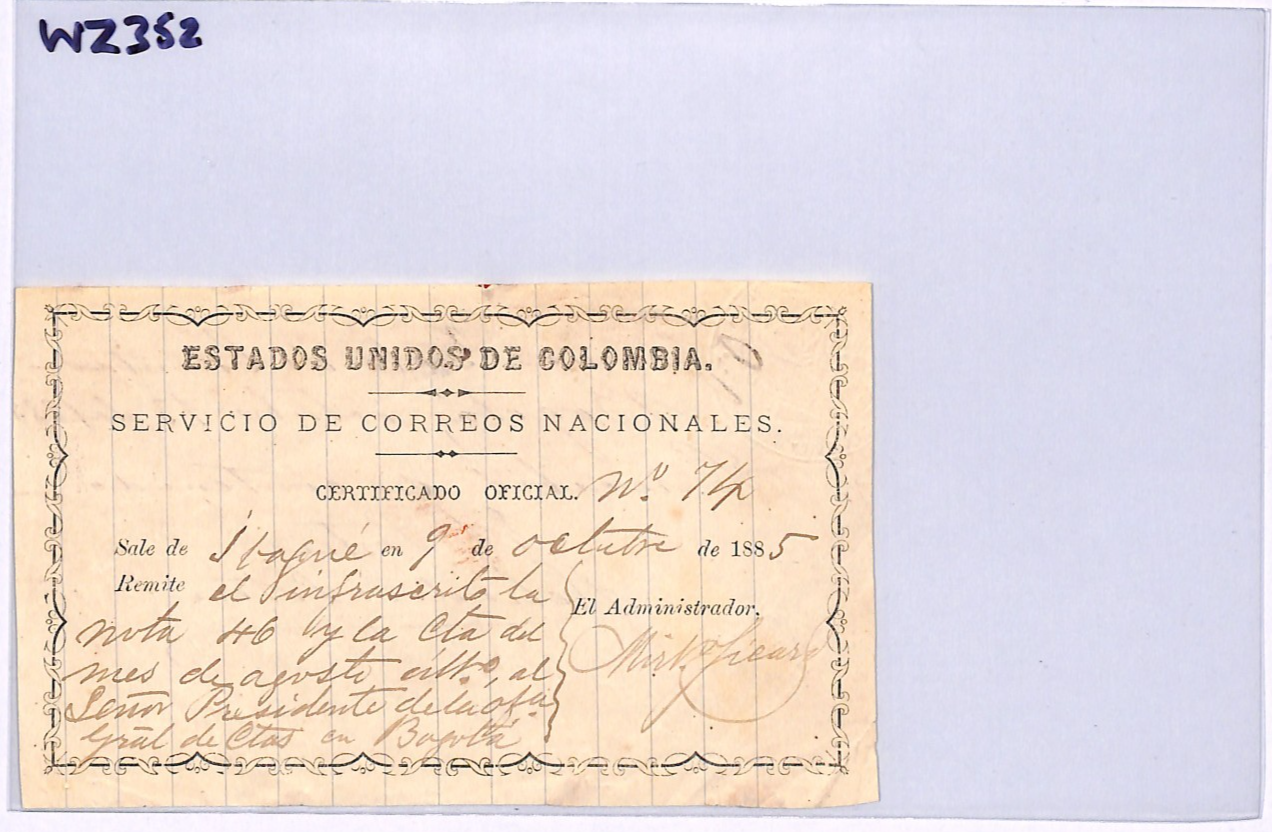 WZ352
ESTADOS UNIDOS DE COLOMBIA.
10
SERVICIO DE CORREOS NACIONALES.
CERTIFICADO OFICIAL. Nº 74
Sale de Ibagué en 9 de octubre de 1885
Remite el infrascrito la
nota 46 y la Cta del
mes de agosto ulto, al
Señor Presidente de la ofna
Gral de Ctas en Bogotá
El Administrador,